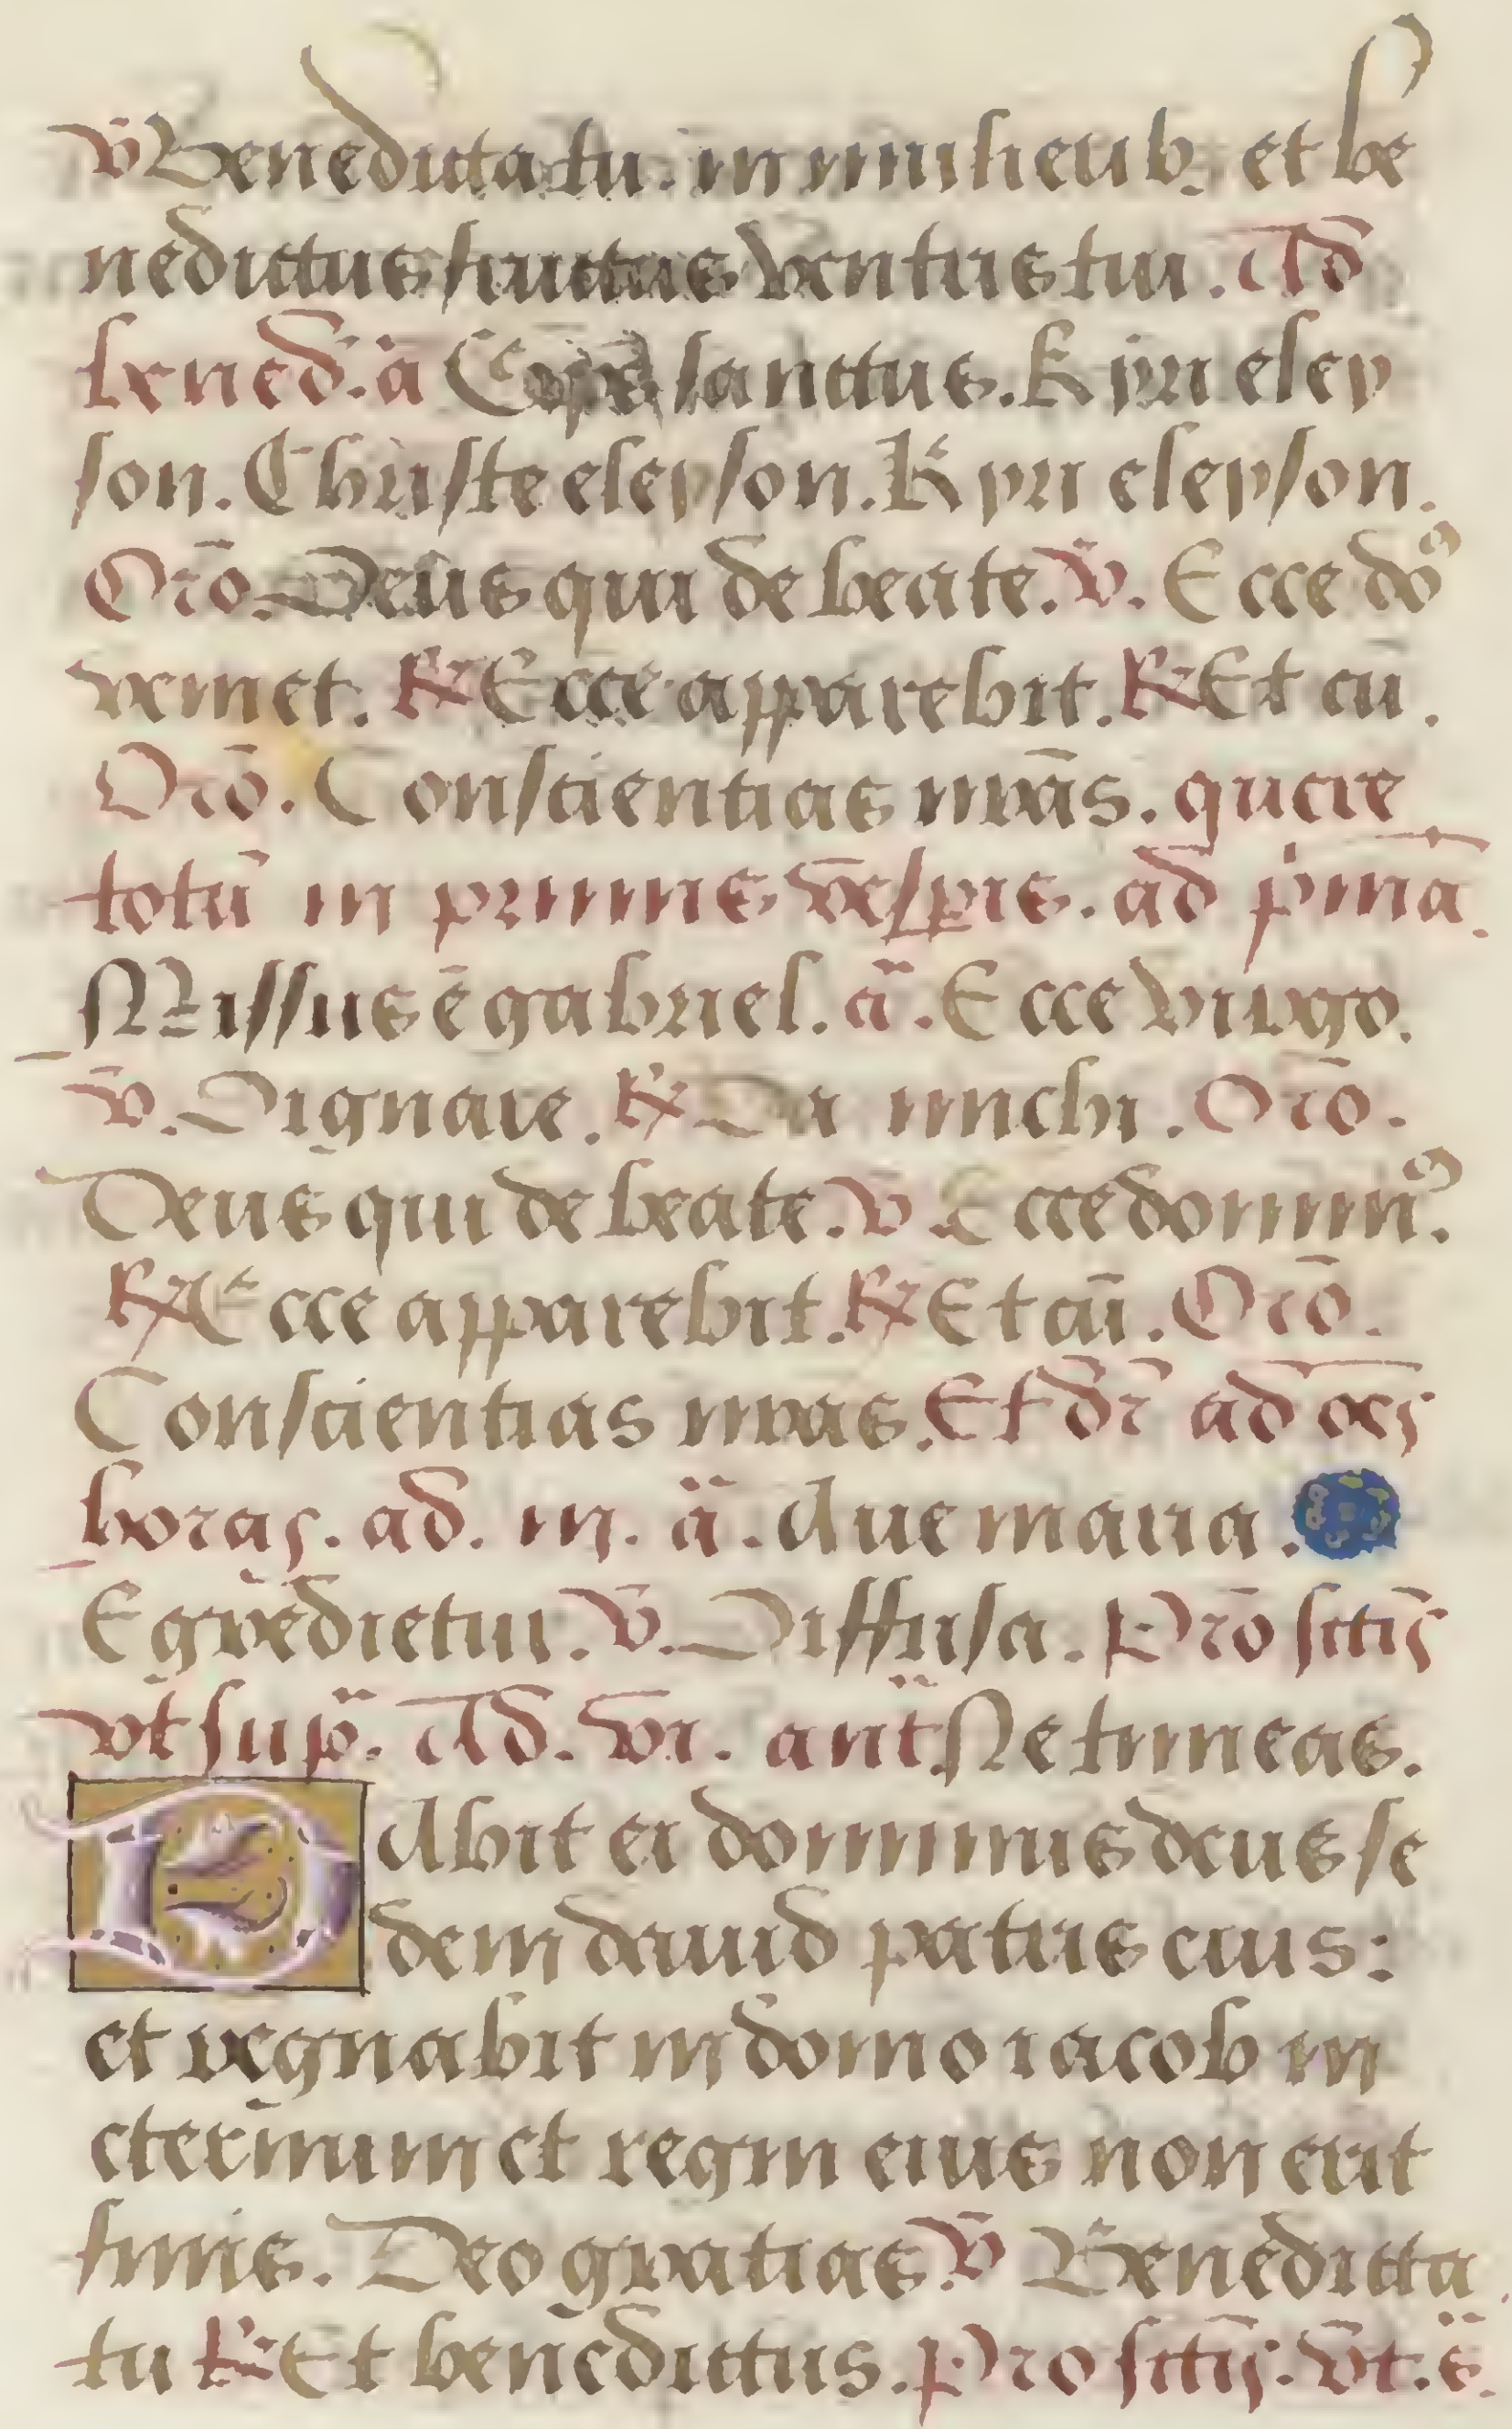 v̄ Benedicta tu. in mulierib; et be
nedictus fructus ventris tui. Ad
bened̄. ā sanctus. Kyri eley
son. Christe eleyson. Kyri eleyson.
Orō. Deus qui de beate. v̄. Ecce doꝰ
veniet. ℟ Ecce apparebit. ℟ Et cū.
Orō. Conscientias nrās. quere
totū in primis vesp̄is. ad pͥmā.
Missus ē gabriel. ā. Ecce virgo.
v̄. Dignare. ℟ Da michi. Orō.
Deus qui de beate. v̄. Ecce dominꝰ.
℟ Ecce apparebit. ℟ Et cū. Orō.
Conscientias nras. Et dr̄ ad oēs
horas. ad. iii. ā. Ave maria.
Egredietur. v̄. Diffusa. Prō sctīs
vt supᷓ. Ad. vi. ant̄. Ne timeas.
DAbit ei dominus deus se
dem david patris eius:
et regnabit in domo iacob in
eternum et regni eius non erit
finis. Deo gratias. v̄ Benedicta
tu ℟ Et benedictus. Pro sctīs. vt. s̄.